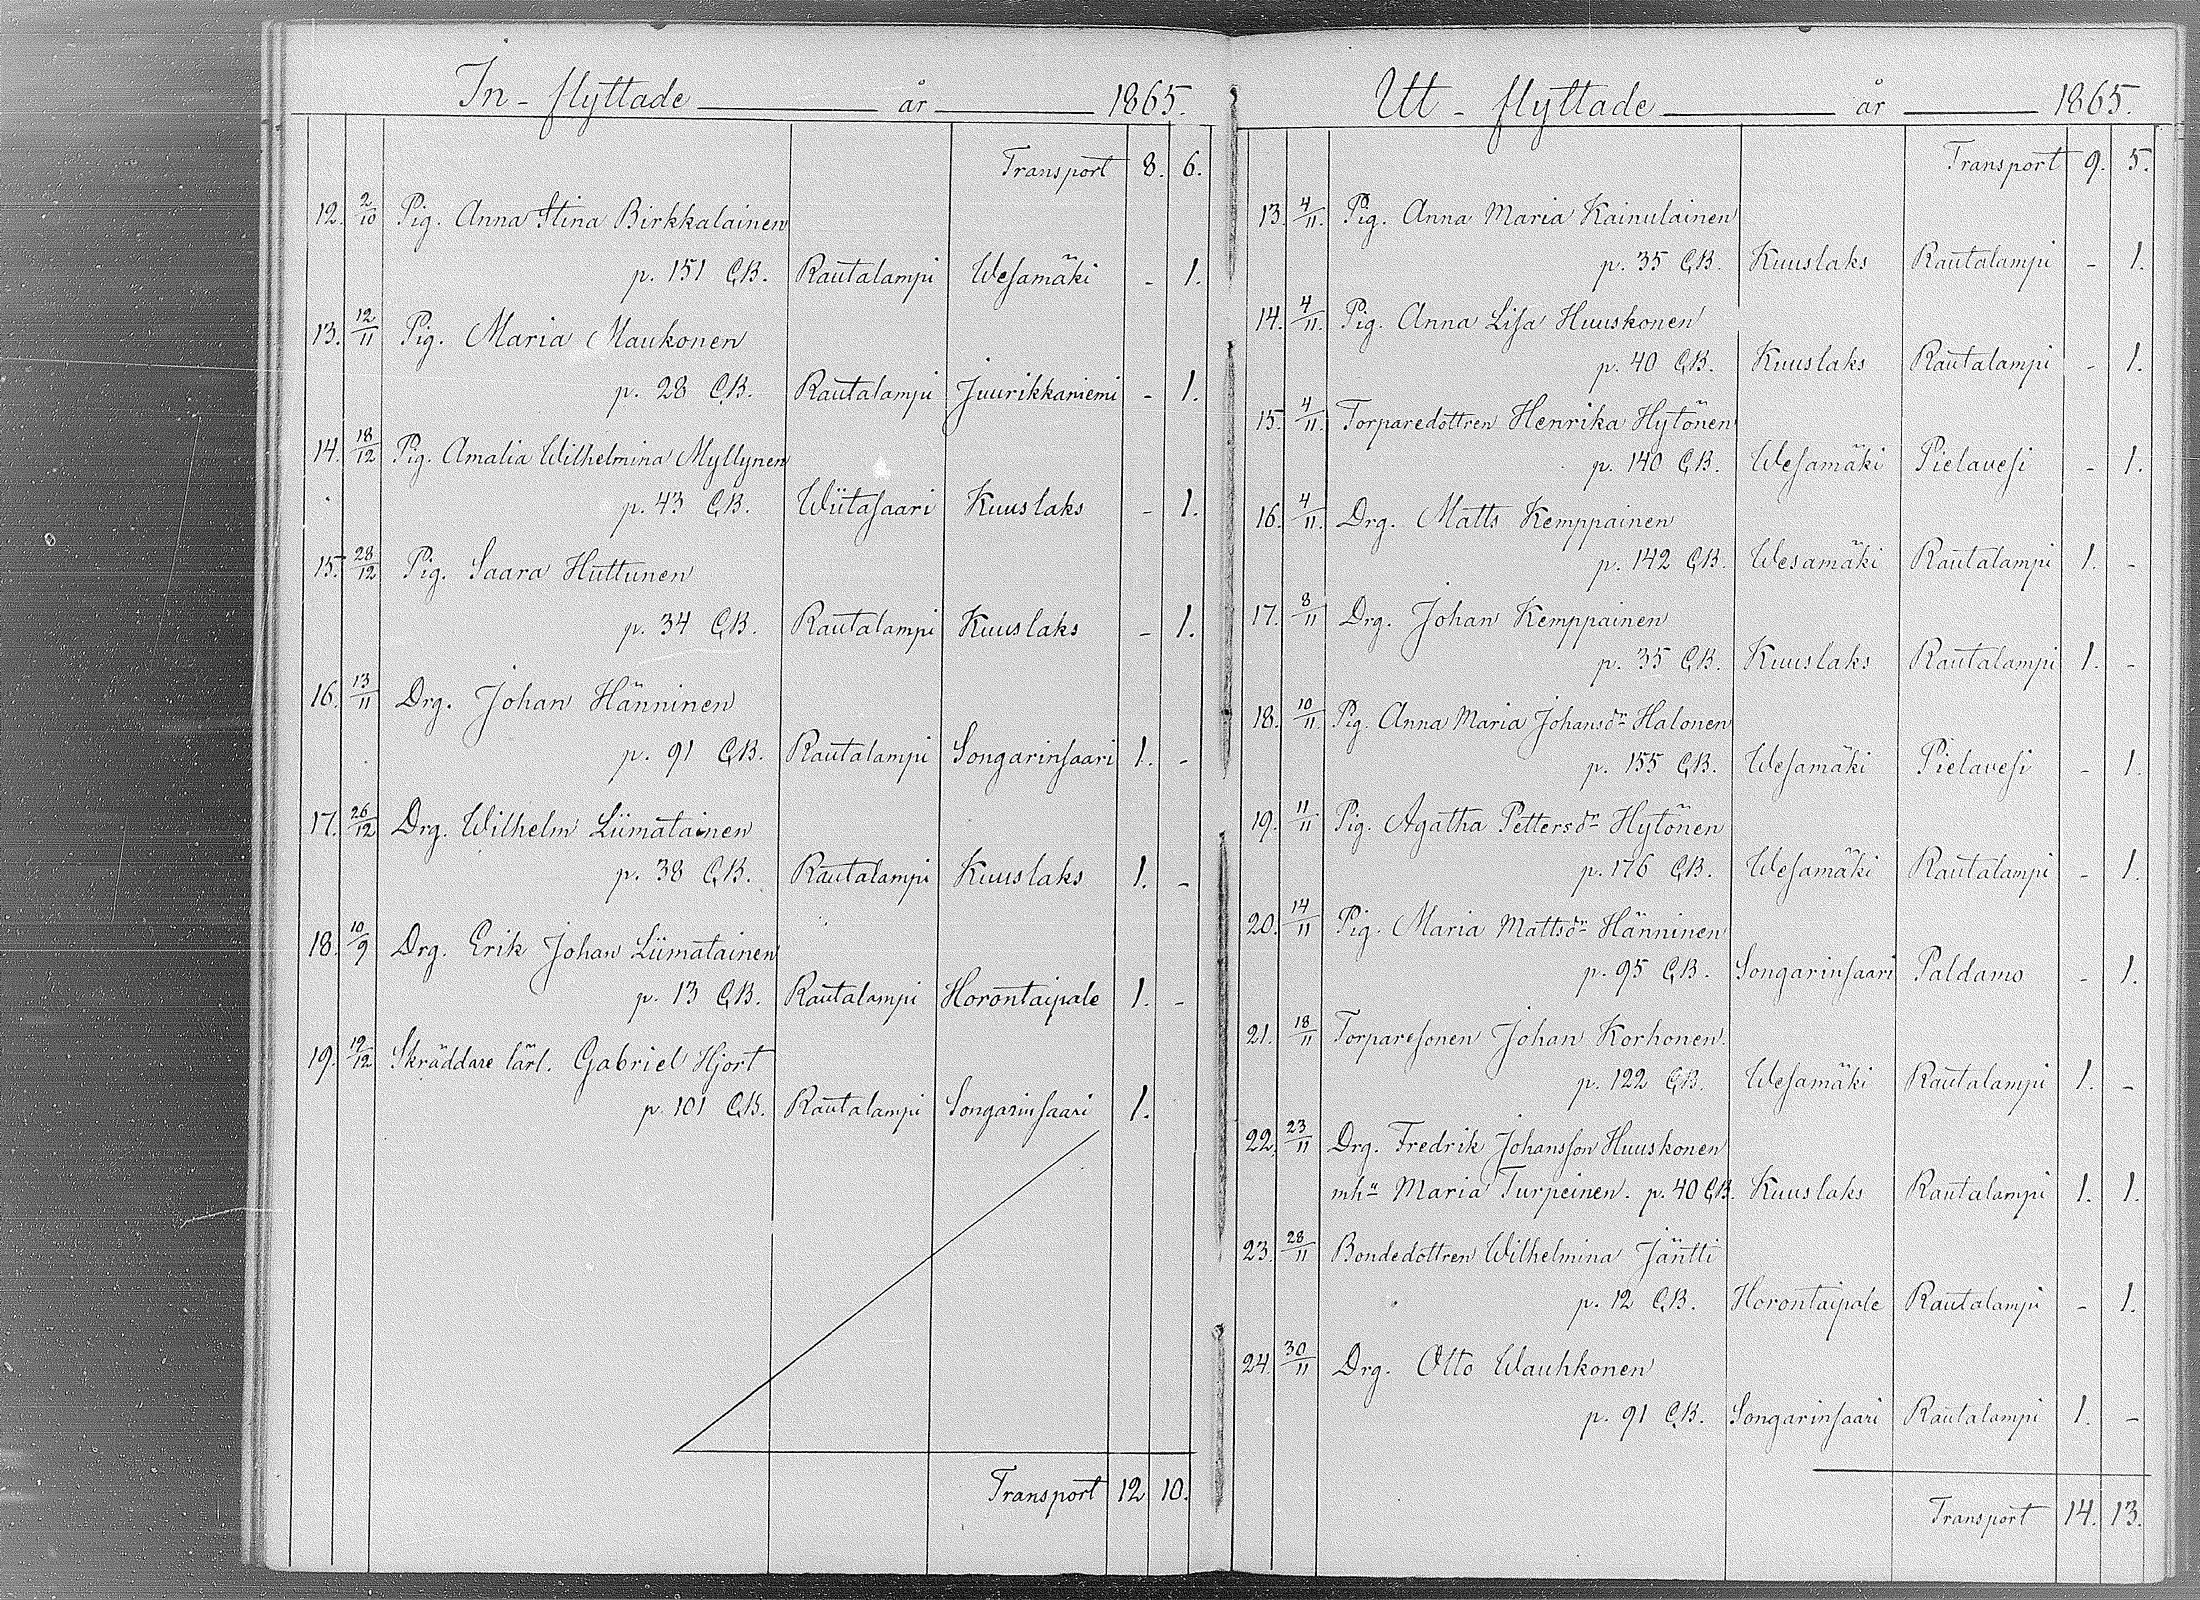 In-flyttade år 1865.
Transport 8. 6.
12. 2/10 Pig. Anna Stina Birkkalainen
p. 151 C,B. Rautalampi Wesamäki - 1.
13. 12/11 Pig. Maria Maukonen
p. 28 C,B. Rautalampi Juurikkaniemi - 1.
14. 18/12 Pig. Amalia Wilhelmina Myllynen
p. 43 C,B. Wiitasaari Kuuslaks - 1.
15. 28/12 Pig. Saara Huttunen
p. 34 C,B. Rautalampi Kuuslaks - 1.
16. 13/11 Drg. Johan Hänninen
p. 91 C,B. Rautalampi Songarinsaari 1. -
17. 26/12 Drg. Wilhelm Liimatainen
p. 38 C,B. Rautalampi Kuuslaks 1. -
18. 10/9 Drg. Erik Johan Liimatainen
p. 13 C,B. Rautalampi Horontaipale 1. -
19. 19/12 Skräddare lärl. Gabriel Hjort
p. 101 C,B. Rautalampi Songarinsaari 1.
Transport 12 10.
Utt-flyttade år 1865.
Transport 9. 5.
13. 4/11. Pig. Anna Maria Kainulainen
p. 35 C,B. Kuuslaks Rautalampi - 1.
14. 4/11. Pig. Anna Lisa Huuskonen
p. 40 C,B. Kuuslaks Rautalampi - 1.
15. 4/11. Torparedottren Henrika Hytönen
p. 140 C,B. Wesamäki Pielavesi - 1.
16. 4/11. Drg. Matts Kemppainen
p. 142 C,B. Wesamäki Rautalampi 1. -
17. 8/11 Drg. Johan Kemppainen
p. 35 C,B. Kuuslaks Rautalampi 1. -
18. 10/11 Pig. Anna Maria Johansdr Halonen
p. 155 C,B. Wesamäki Pielavesi - 1.
19. 11/11 Pig. Agatha Pettersdr Hytönen
p. 176 C,B. Wesamäki Rautalampi - 1.
20. 14/11 Pig. Maria Mattsdr Hänninen
p. 95 C,B. Songarinsaari Paldamo - 1.
21. 18/11 Torparesonen Johan Korhonen.
p. 122 C,B. Wesamäki Rautalampi 1. -
22. 23/11 Drg. Fredrik Johansson Huuskonen
mhu Maria Turpeinen. p. 40 C,B. Kuuslaks Rautalampi 1. 1.
23. 28/11 Bondedottren Wilhelmina Jäntti
p. 12 C,B. Horontaipale Rautalampi - 1.
24. 30/11 Drg. Otto Wauhkonen
p. 91 C,B. Songarinsaari Rautalampi 1. -
Transport 14. 13.